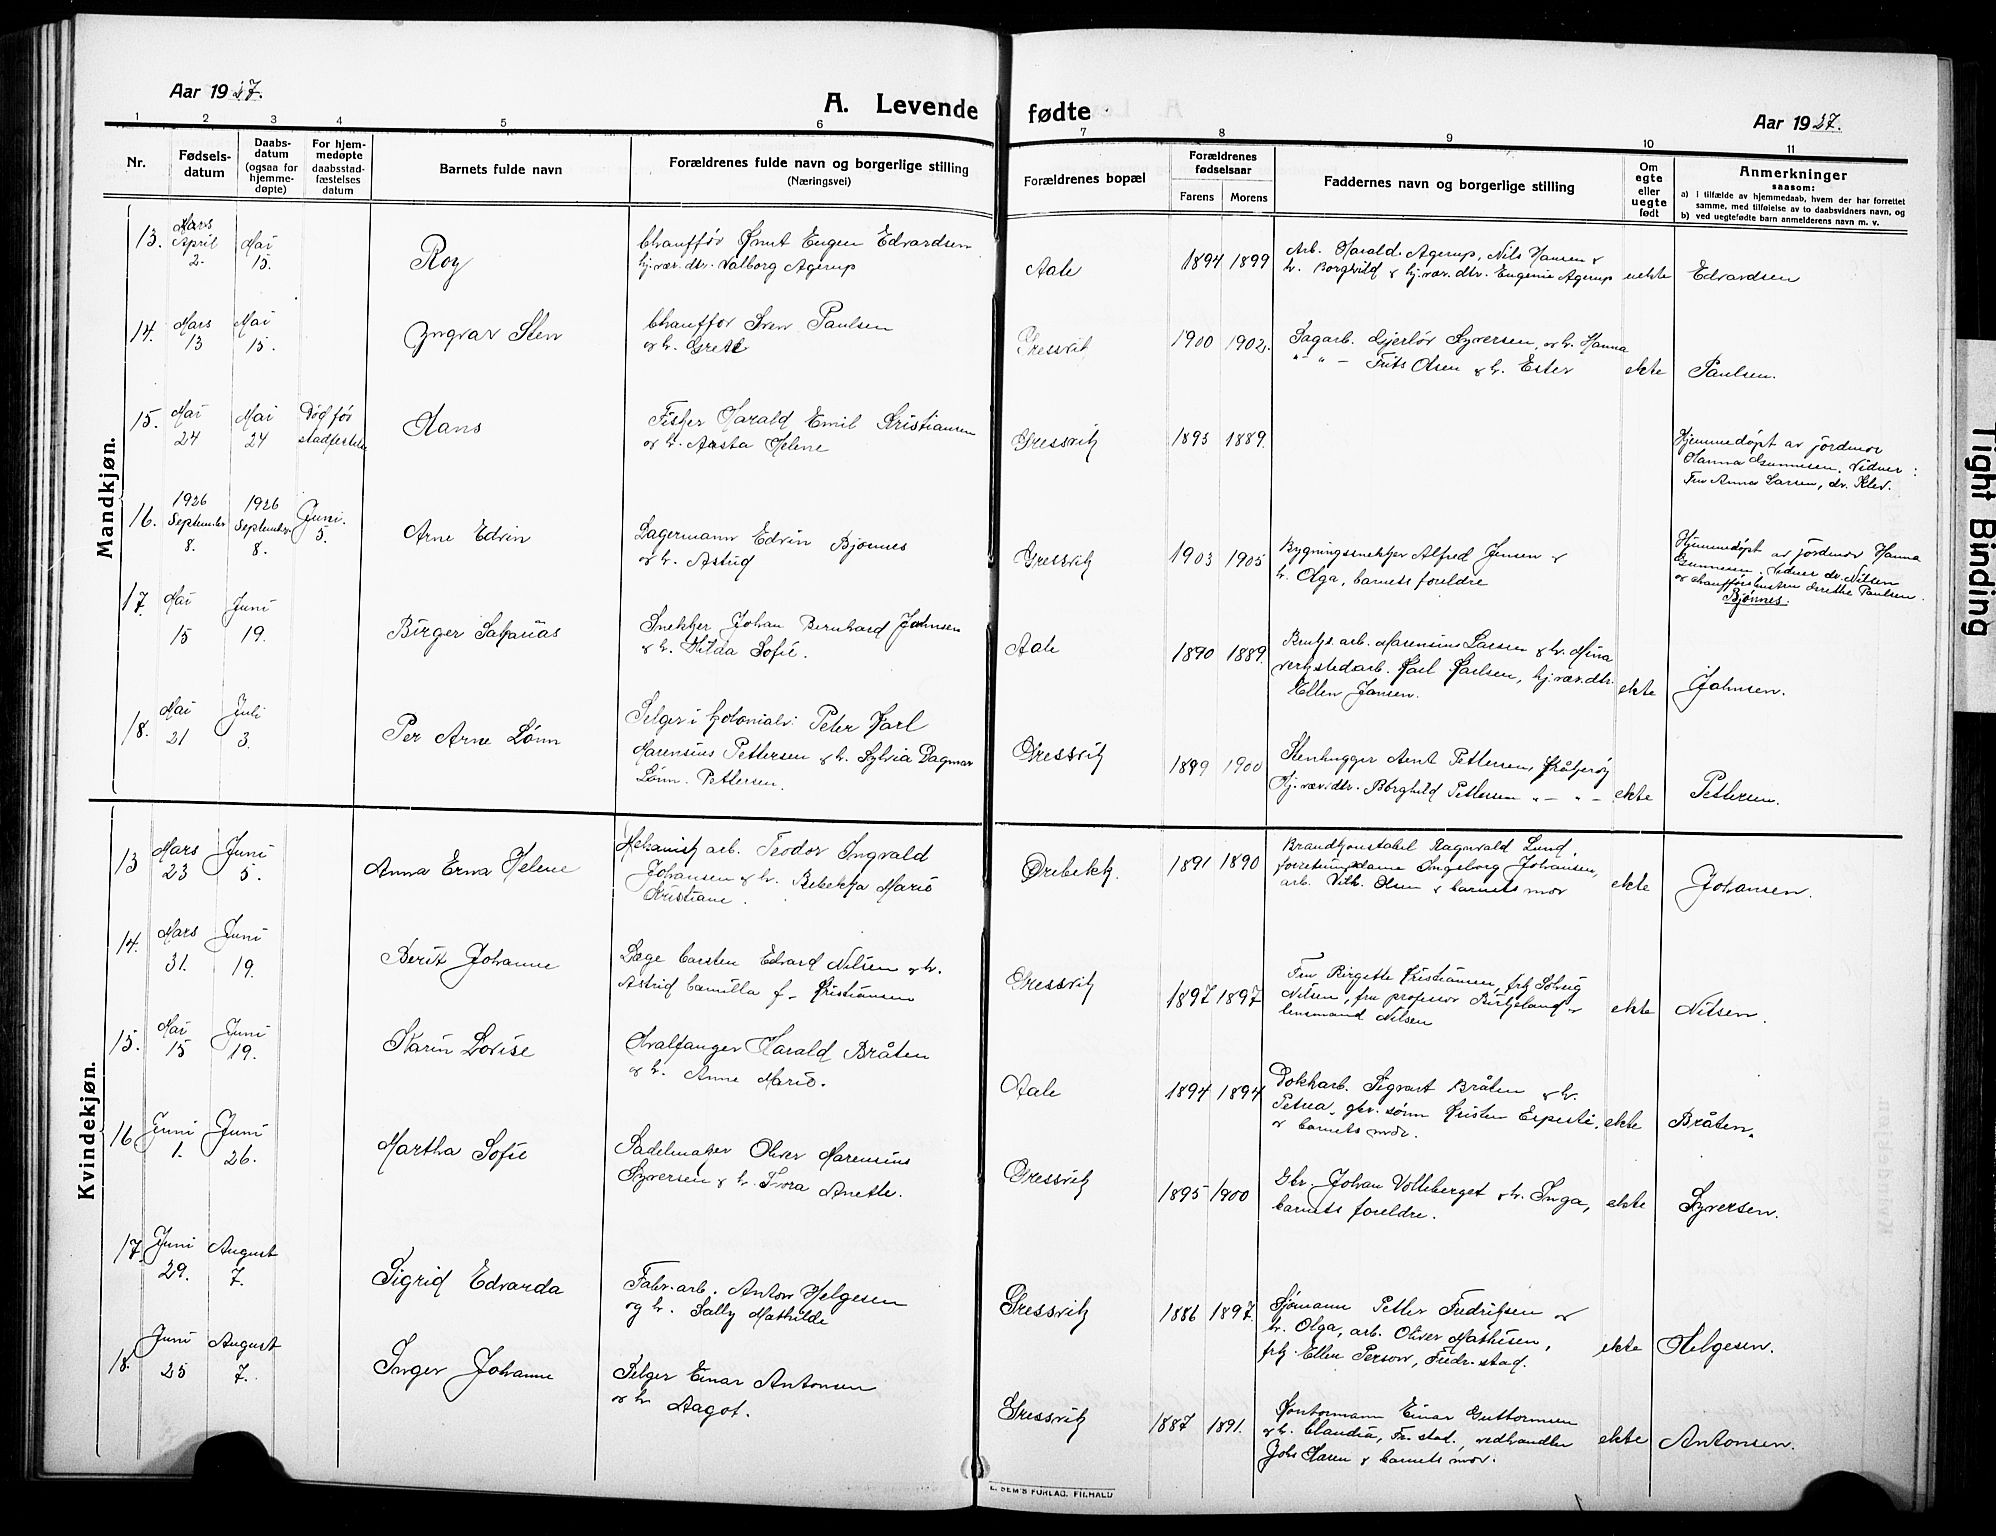 Aar 1927.
A. Levende fødte
Aar 1927.
1 2 3 4 5 6 7 8 9 10 11
Nr.
Fødsels-
datum
Daabs-
datum
(ogsaa for
hjemme-
døpte)
For hjem-
medøpte
daabsstad-
fæstelses
datum
Barnets fulde navn
Forældrenes fulde navn og borgerlige stilling
(Næringsvei)
Forældrenes bopæl
Forældrenes
fødselsaar
Farens Morens
Faddernes navn og borgerlige stilling
Om
egte
eller
uegte
født
Anmerkninger
saasom:
a) i tilfælde av hjemmedaab, hvem der har forrettet
samme, med tilføielse av to daabsvidners navn, og
b) ved uegtefødte barn anmelderens navn m. v.
Mandkjøn.
13. Mars
April
2.
Mai
15.
Roy
Chauffør Knut Eugen Edvardsen
hj.vær.dtr. Valborg Agerup
Aale
1894 1899
Arb. Harald Agerup, Nils Hansen &
h. Borghild & hj.vær.dtr. Eugenie Agerup
uekte
Edvardsen
14. Mars
13
Mai
15.
Yngvar Sten
Chauffør Sven Paulsen
og h. Grete
Gressvik
1900 1902.
Sagarb. Gjerløv Syversen, og h. Hanna
" - " - Frits Olsen & h. Ester
ekte
Paulsen.
15. Mai
24
Mai
24
Død før
stadfestelse
Hans
Fisker Harald Emil Kristiansen
og h. Aasta Helene
Gressvik
1893 1889.
Hjemmedøpt av jordmor
Hanna Gunnesen. Vidner:
Fru Anna Larsen, dr. Klev.
16. 1926
September
8.
1926
September
8.
Juni.
5.
Arne Edvin
Lagermann Edvin Bjønnes
og h. Astrid
Gressvik
1903 1905
Bygningssnekker Alfred Jensen &
h. Olga, barnets foreldre
Hjemmedøpt av jordmor Hanna
Gunnesen. Vidner dr. Nilsen
og chaufførhustru Grethe Paulsen.
Bjønnes.
17. Mai
15
Juni
19.
Birger Sakarias
Snekker Johan Bernhard Johnsen
& h. Hilda Sofie.
Aale
1890 1889.
Brugs.arb. Marensius Larsen & h. Mina
verkstedarb. Karl Karlsen, hj.vær.dtr.
Ellen Jansen.
ekte
Johnsen.
18. Mai
21
Juli
3.
Per Arne Lønn
Selger i kolonialv. Peter Karl
Marensius Pettersen & h. Sylvia Dagmar
Lønn-Pettersen.
Gressvik
1899 1900
Stenhugger Arnt Pettersen, Kråkerøy
Hj.vær.dtr. Borghild Pettersen " - " -
ekte
Pettersen.
Kvindekjøn.
13 Mars
23
Juni
5.
Anna Erna Helene
Mekanisk arb. Teodor Ingvald
Johansen & h. Rebekka Marie
Kristiane.
Ørebekk.
1891 1890
Brandkonstabel Ragnvald Lund,
forretningsdame Ingeborg Johansen,
arb. Vilh. Olsen & barnets mor
ekte
Johansen.
14. Mars
31.
Juni
19.
Berit Johanne
Læge Carsten Edvard Nilsen & h.
Astrid Camilla f. Kristiansen
Gressvik
1897 1897
Fru Birgitte Kristiansen, frk Solveig
Nilsen, fru professor Birkeland &
lensmand Nilsen
ekte
Nilsen.
15. Mai
15
Juni
19.
Karin Lovise
Hvalfanger Harald Bråten
og h. Anne Marie.
Aale
1894 1894
Dokkarb. Sigvart Bråten & h.
Petrea, gbr. sønn Kristen Espeli,
& barnets mor.
ekte
Bråten.
16 Juni
1.
Juni
26.
Martha Sofie
Sadelmaker Oliver Marensius
Syversen & h. Tora Anette.
Gressvik
1895 1900
Gbr. Johan Volleberget & h. Inga,
barnets foreldre.
ekte
Syversen.
17. Juni
29.
August
7.
Sigrid Edvarda
Fabr.arb. Anton Helgesen
og h. Sally Mathilde
Gressvik
1886 1897.
Sjømann Petter Fredriksen &
h. Olga, arb. Oliver Mathisen,
frk. Ellen Person, Fredr.stad.
ekte
Helgesen.
18. Juni
25
August
7.
Inger Johanne
Selger Einar Antonsen
og h Aagot.
Gressvik
1887 1891.
Kontormann Einar Guttormsen
& h. Claudia, Fr.stad., vedhandler
Johs Hasen & barnets mor.
ekte
Antonsen.
SEM'S FORLAG, FR.HALD
Tight Binding